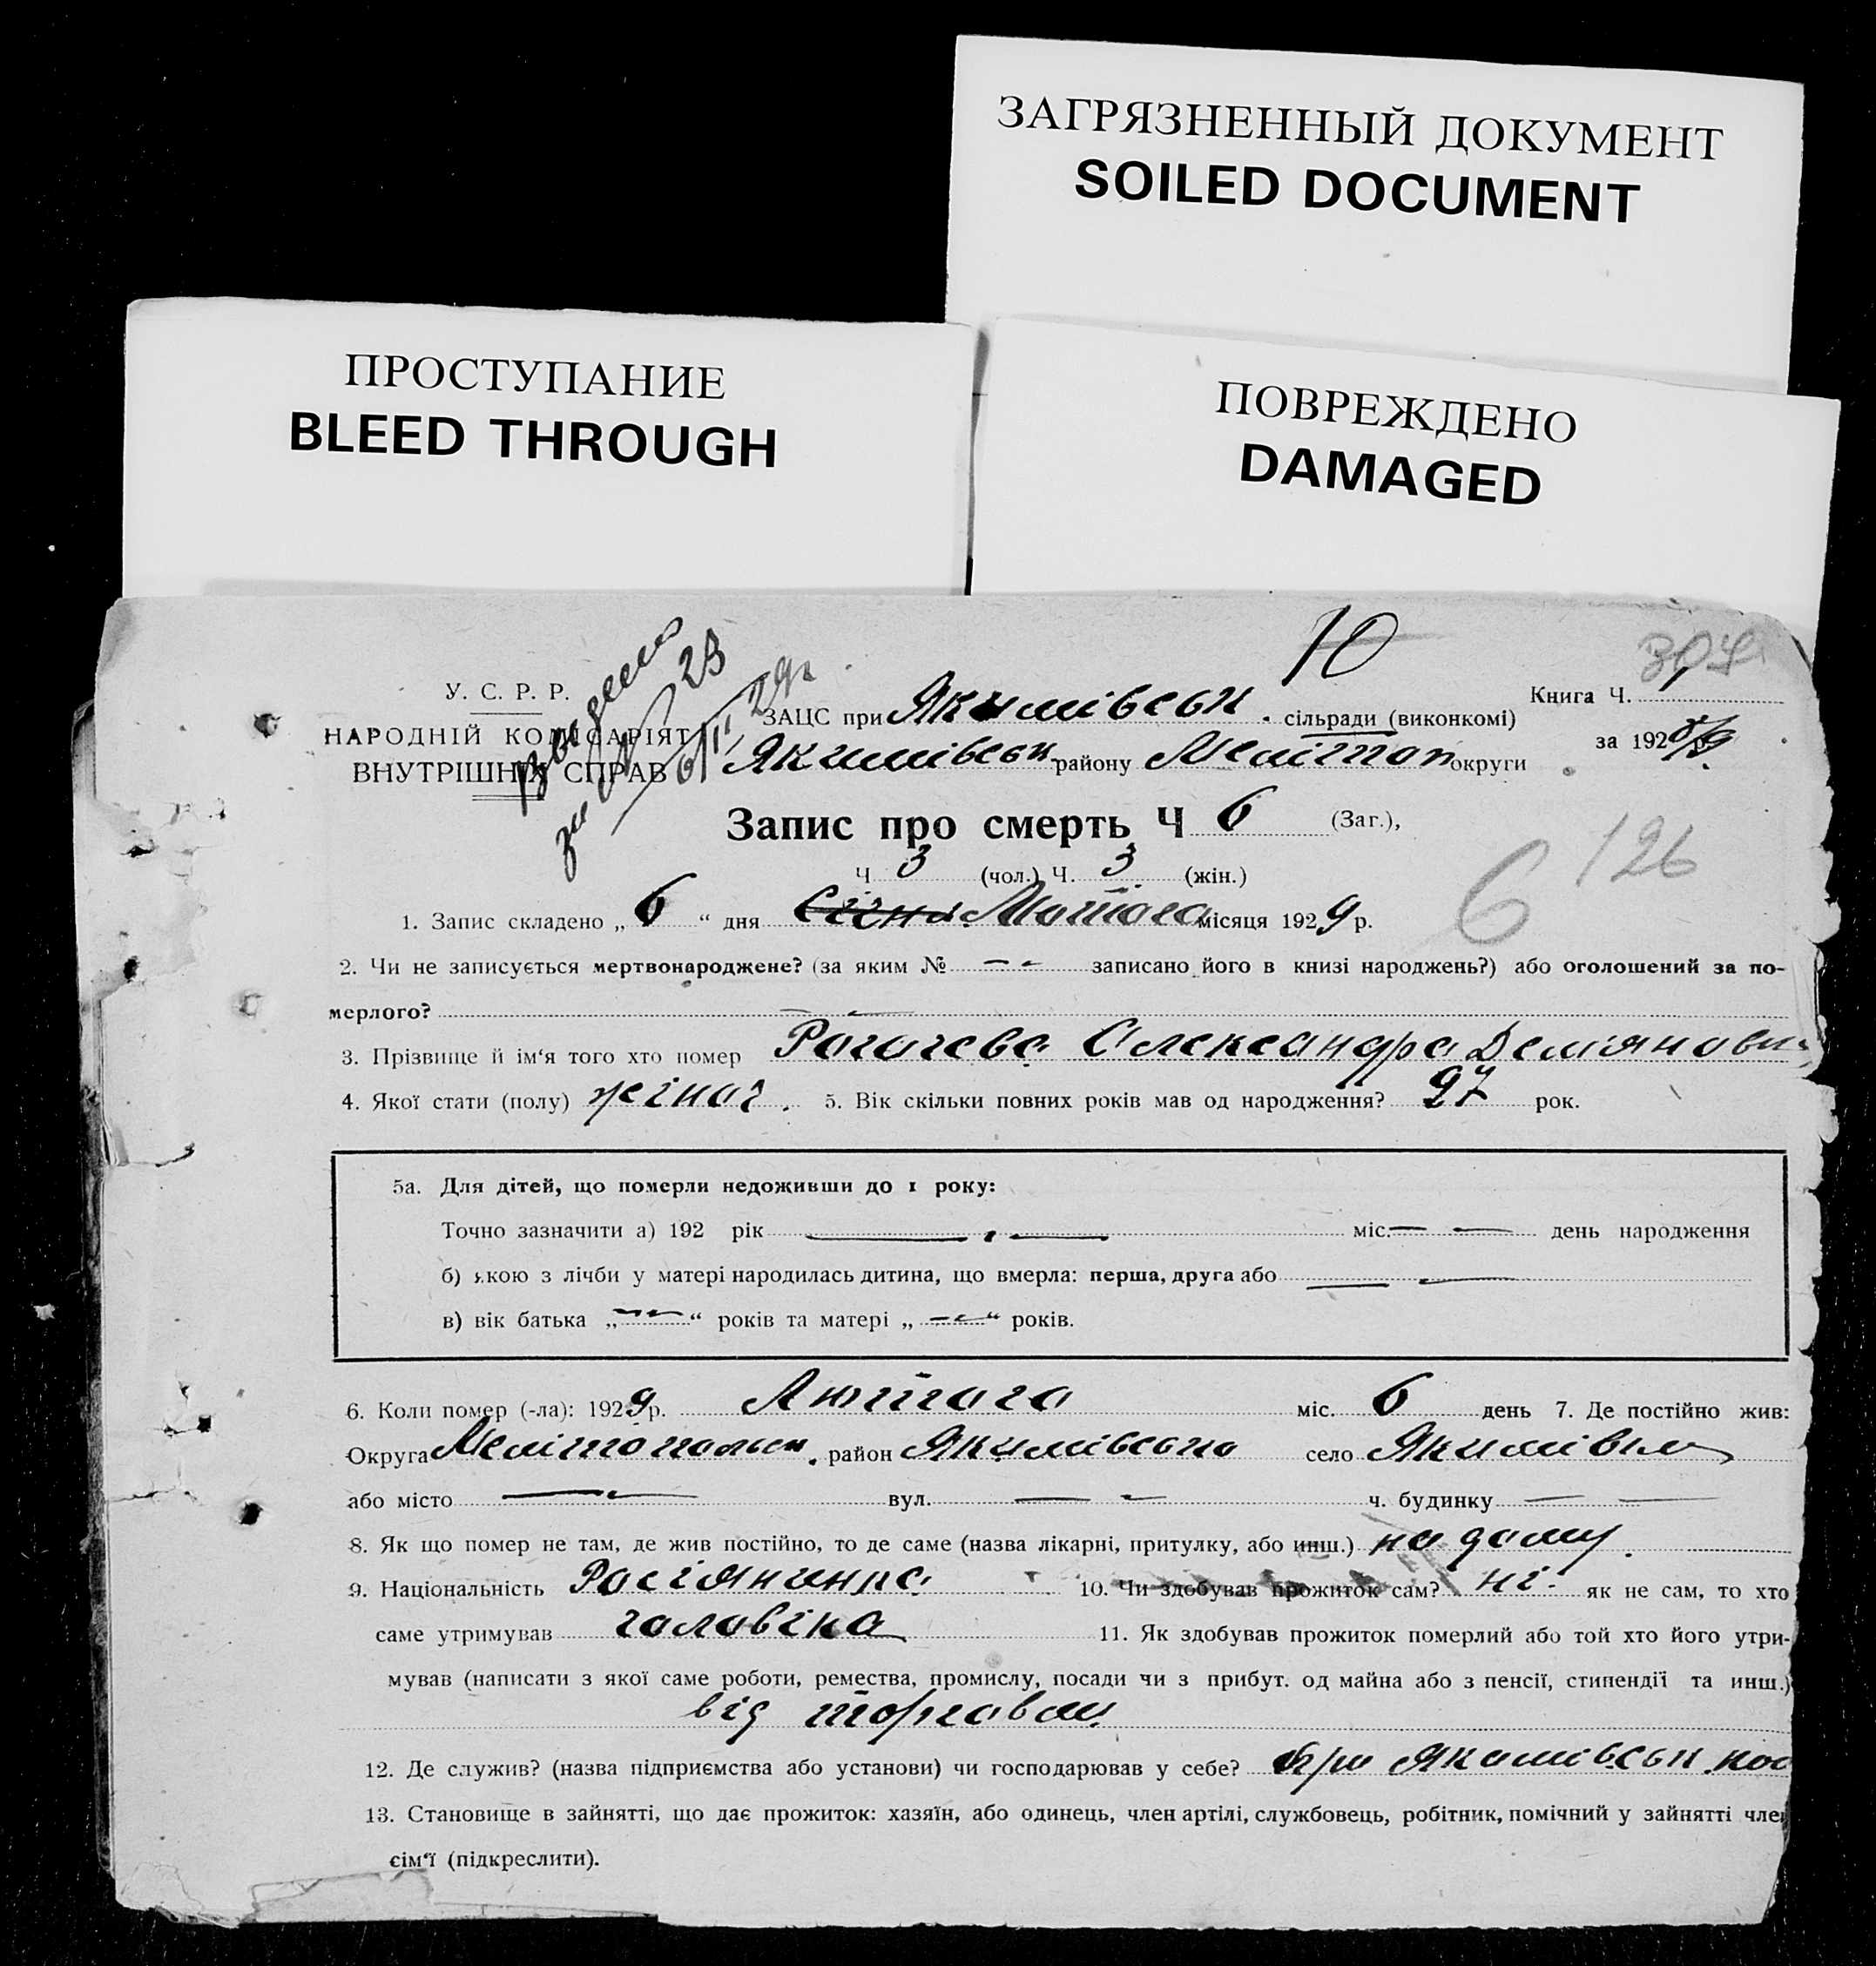 ЗАГРЯЗНЕННЫЙ ДОКУМЕНТ
SOILED DOCUMENT
ПРОСТУПАНИЕ
BLEED THROUGH
ПОВРЕЖДЕНО
DAMAGED
10
У. С. Р. Р.
НАРОДНІЙ КОМІСАРІЯТ
ВНУТРІШНІХ СПРАВ
23
ЗАЦС при Якимівськ. сільради (виконкомі)
Якимівськ. району Мелітоп округи
Книга Ч.
за 1928/9 р.
Запис про смерть Ч 6 (Заг.),
Ч 3 (чол.) Ч. 3 (жін.)
6 126
1. Запис складено „ 6 “ дня Січня Лютого місяця 1929 р.
2. Чи не записується мертвонароджене? (за яким № — — записано його в книзі народжень?) або оголошений за по-
мерлого? —
3. Прізвище й ім‘я того хто помер Рогачева Олександра Демяновн
4. Якої стати (полу) жіноч. 5. Вік скільки повних років мав од народження? 27 рок.
5а. Для дітей, що померли недоживши до 1 року:
Точно зазначити а) 192 рік — — міс. — — день народження
б) якою з лічби у матері народилась дитина, що вмерла: перша, друга або — —
в) вік батька „ — — “ років та матері „ — — “ років.
6. Коли помер (-ла): 1929 р. Лютого міс. 6 день 7. Де постійно жив:
Округа Мелітопольськ. район Якимівського село Якимівки
або місто — — вул. — — ч. будинку — —
8. Як що помер не там, де жив постійно, то де саме (назва лікарні, притулку, або инш.) на дому.
9. Національність Росіянинка 10. Чи здобував прожиток сам? ні. як не сам, то хто
саме утримував чоловіка 11. Як здобував прожиток померлий або той хто його утри-
мував (написати з якої саме роботи, ремества, промислу, посади чи з прибут. од майна або з пенсії, стипендії та инш.)
від торговли
12. Де служив? (назва підприємства або установи) чи господарював у себе? при Якимівськ.
13. Становище в зайнятті, що дає прожиток: хазяїн, або одинець, член артілі, службовець, робітник, помічний у зайнятті член
сім‘ї (підкреслити).